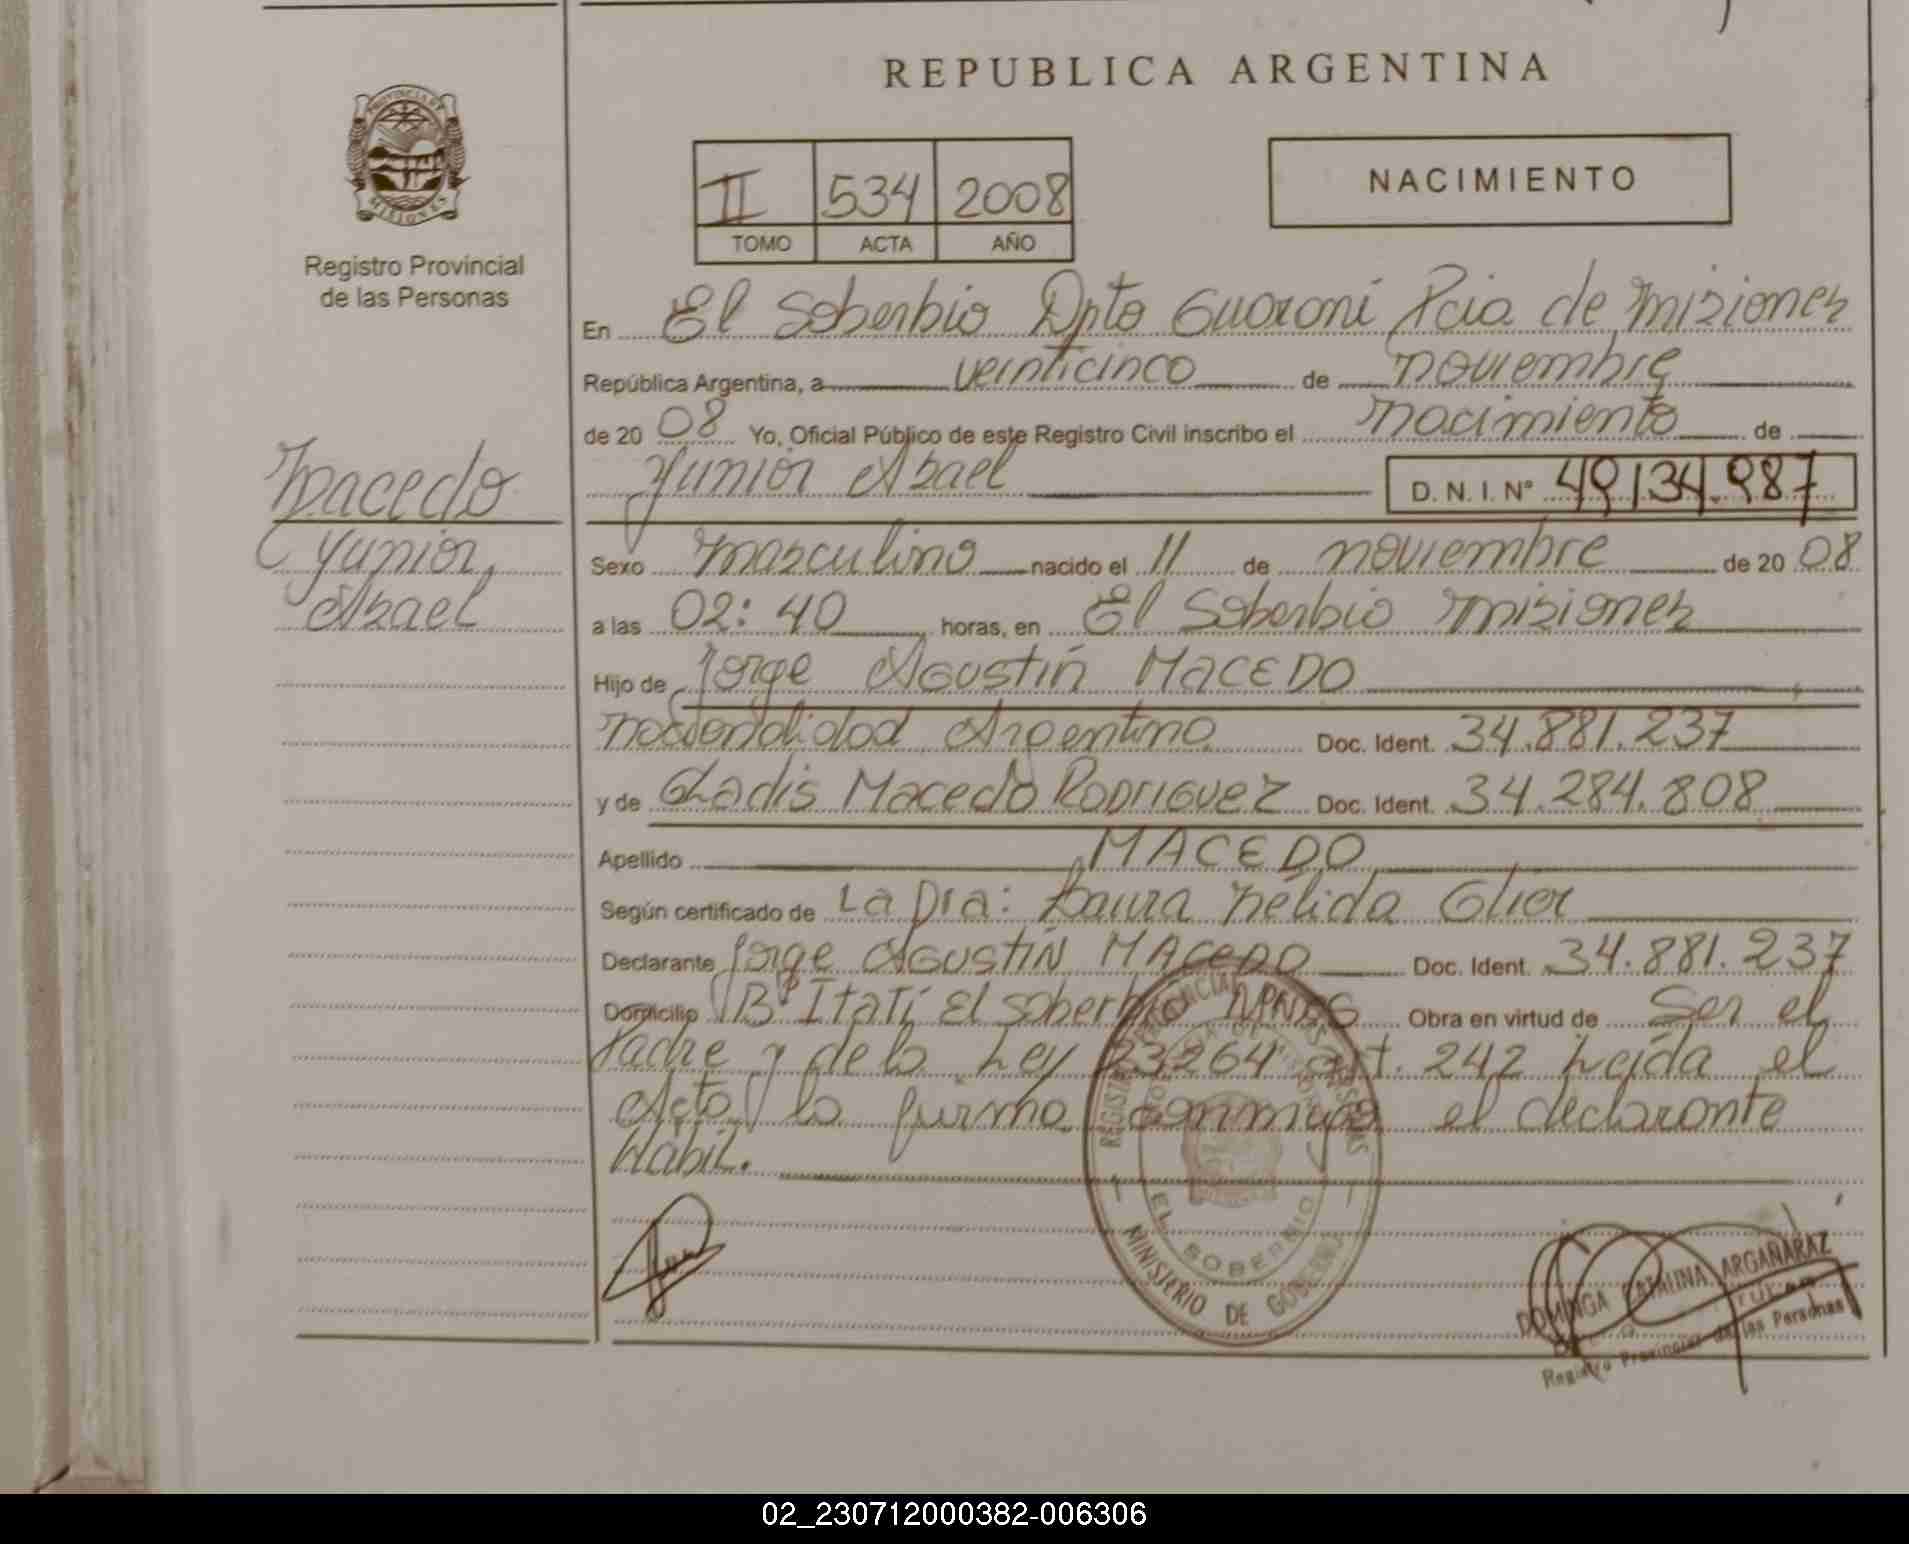 REPUBLICA ARGENTINA
PROVINCIA DE
MISIONES
Registro Provincial
de las Personas
II 534 2008
TOMO ACTA AÑO
NACIMIENTO
En El Soberbio Dpto Guaraní Pcia de Misiones
República Argentina, a veinticinco de noviembre
de 20 08 Yo, Oficial Público de este Registro Civil inscribo el nacimiento de
Yunior Asael D. N. I. Nº 49134.987
Macedo
Yunior,
Asael
Sexo masculino nacido el 11 de noviembre de 20 08
a las 02:40 horas, en El Soberbio Misiones
Hijo de Jorge Agustín MACEDO
nacionalidad Argentina Doc. Ident. 34.881.237
y de Gladis Macedo Rodriguez Doc. Ident. 34.284.808
Apellido MACEDO
Según certificado de La Dra: Laura Nélida
Declarante Jorge Agustín MACEDO Doc. Ident. 34.881.237
Domicilio Bº Itatí El Soberbio MNES Obra en virtud de Ser el
Padre y de la Ley 23264 art. 242 Leída el
Acta la firma conmigo el declarante
Habil.
MINISTERIO DE GOBIERNO
EL SOBERBIO
DOMINGA CATALINA ARGAÑARAZ
Registro Provincial de las Personas
02_230712000382-006306